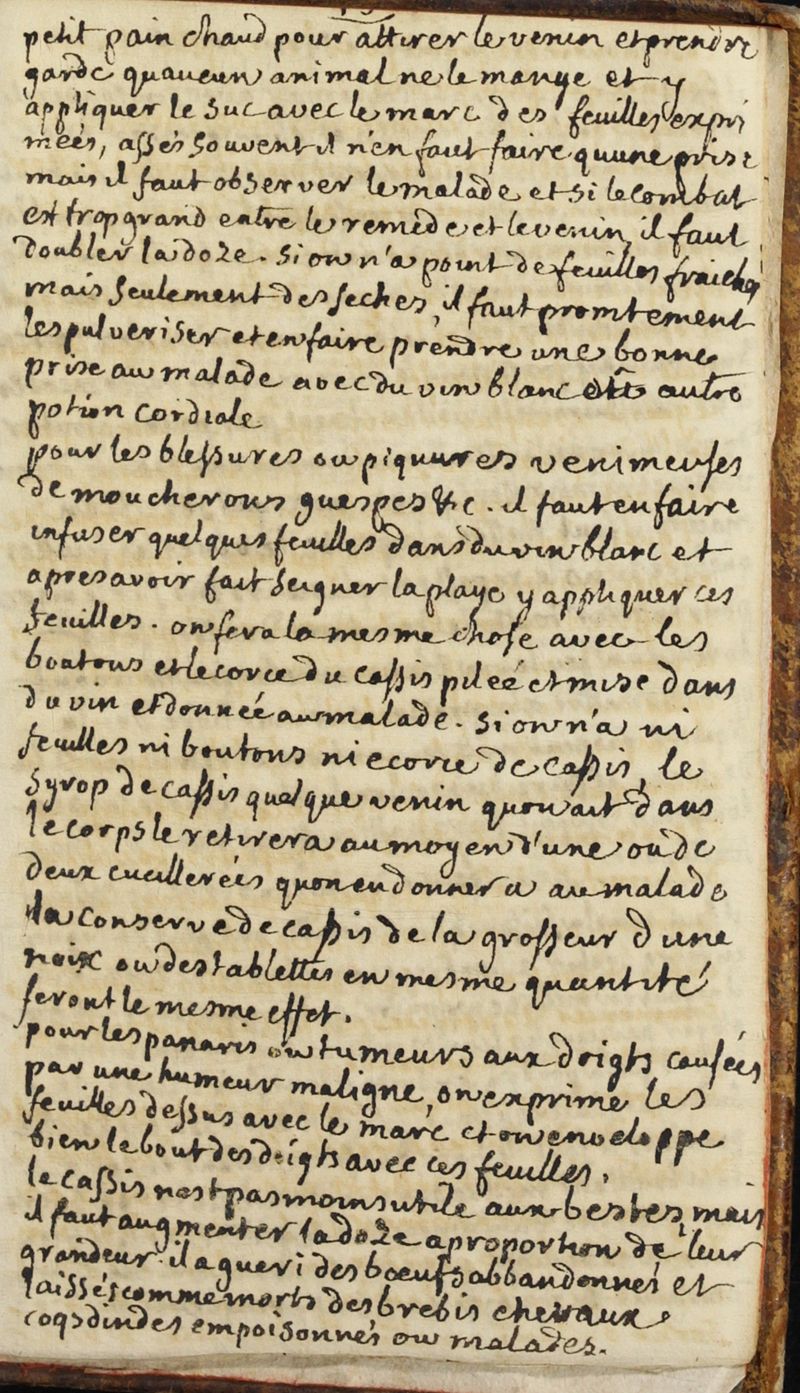 petit pain chaud pour attirer le venin et prendre
garde quaucun animal ne le mange et y
appliquer le suc avec le marc des feuilles expri
meés, assés souvent il n'en faut faire quune prise
mais il faut observer le malade et si le combat
est trop grand entre le remede et le venin, il faut
doubler la doze. si on n'a point de feuilles fraiches
mais seulement des seches, il faut promtement
les pulveriser et en faire prendre une bonne
prise au malade avec du vin blanc autre
potion cordiale
pour les blessures ou piquures venimeuses
de moucherons guespes &c. il faut en faire
infuser quelques feuilles dans du vin blanc et
apres avoir fait seigner la playe y appliquer ces
feuilles. on fera la mesme chose avec les
boutons et lecorce du cassis pileé et mise dans
du vin et donnée au malade. si on n'a ni
feuilles ni boutons ni ecorce de cassis, le
syrop de cassis quelque venin quon ait dans
le corps le retirera au moyen d'une ou de
deux cueillereés quon en donnera au malade
la conserve de cassis de la grosseur d'une
noix ou des tablettes en mesme quantité
feront le mesme effet.
pour les panaris ou tumeurs aux doigts causées
par une humeur maligne, on exprime les
feuilles dessus avec le marc et on enveloppe
bien le bout des doigts avec ces feuilles.
le cassis nest pas moins utile aux bestes, mais
il faut augmenter la doze a proportion de leur
grandeur. il a gueri des boeufs abbandonnés et
laissés comme morts des brebis chevaux
coqs dindes empoisonnés ou malades.